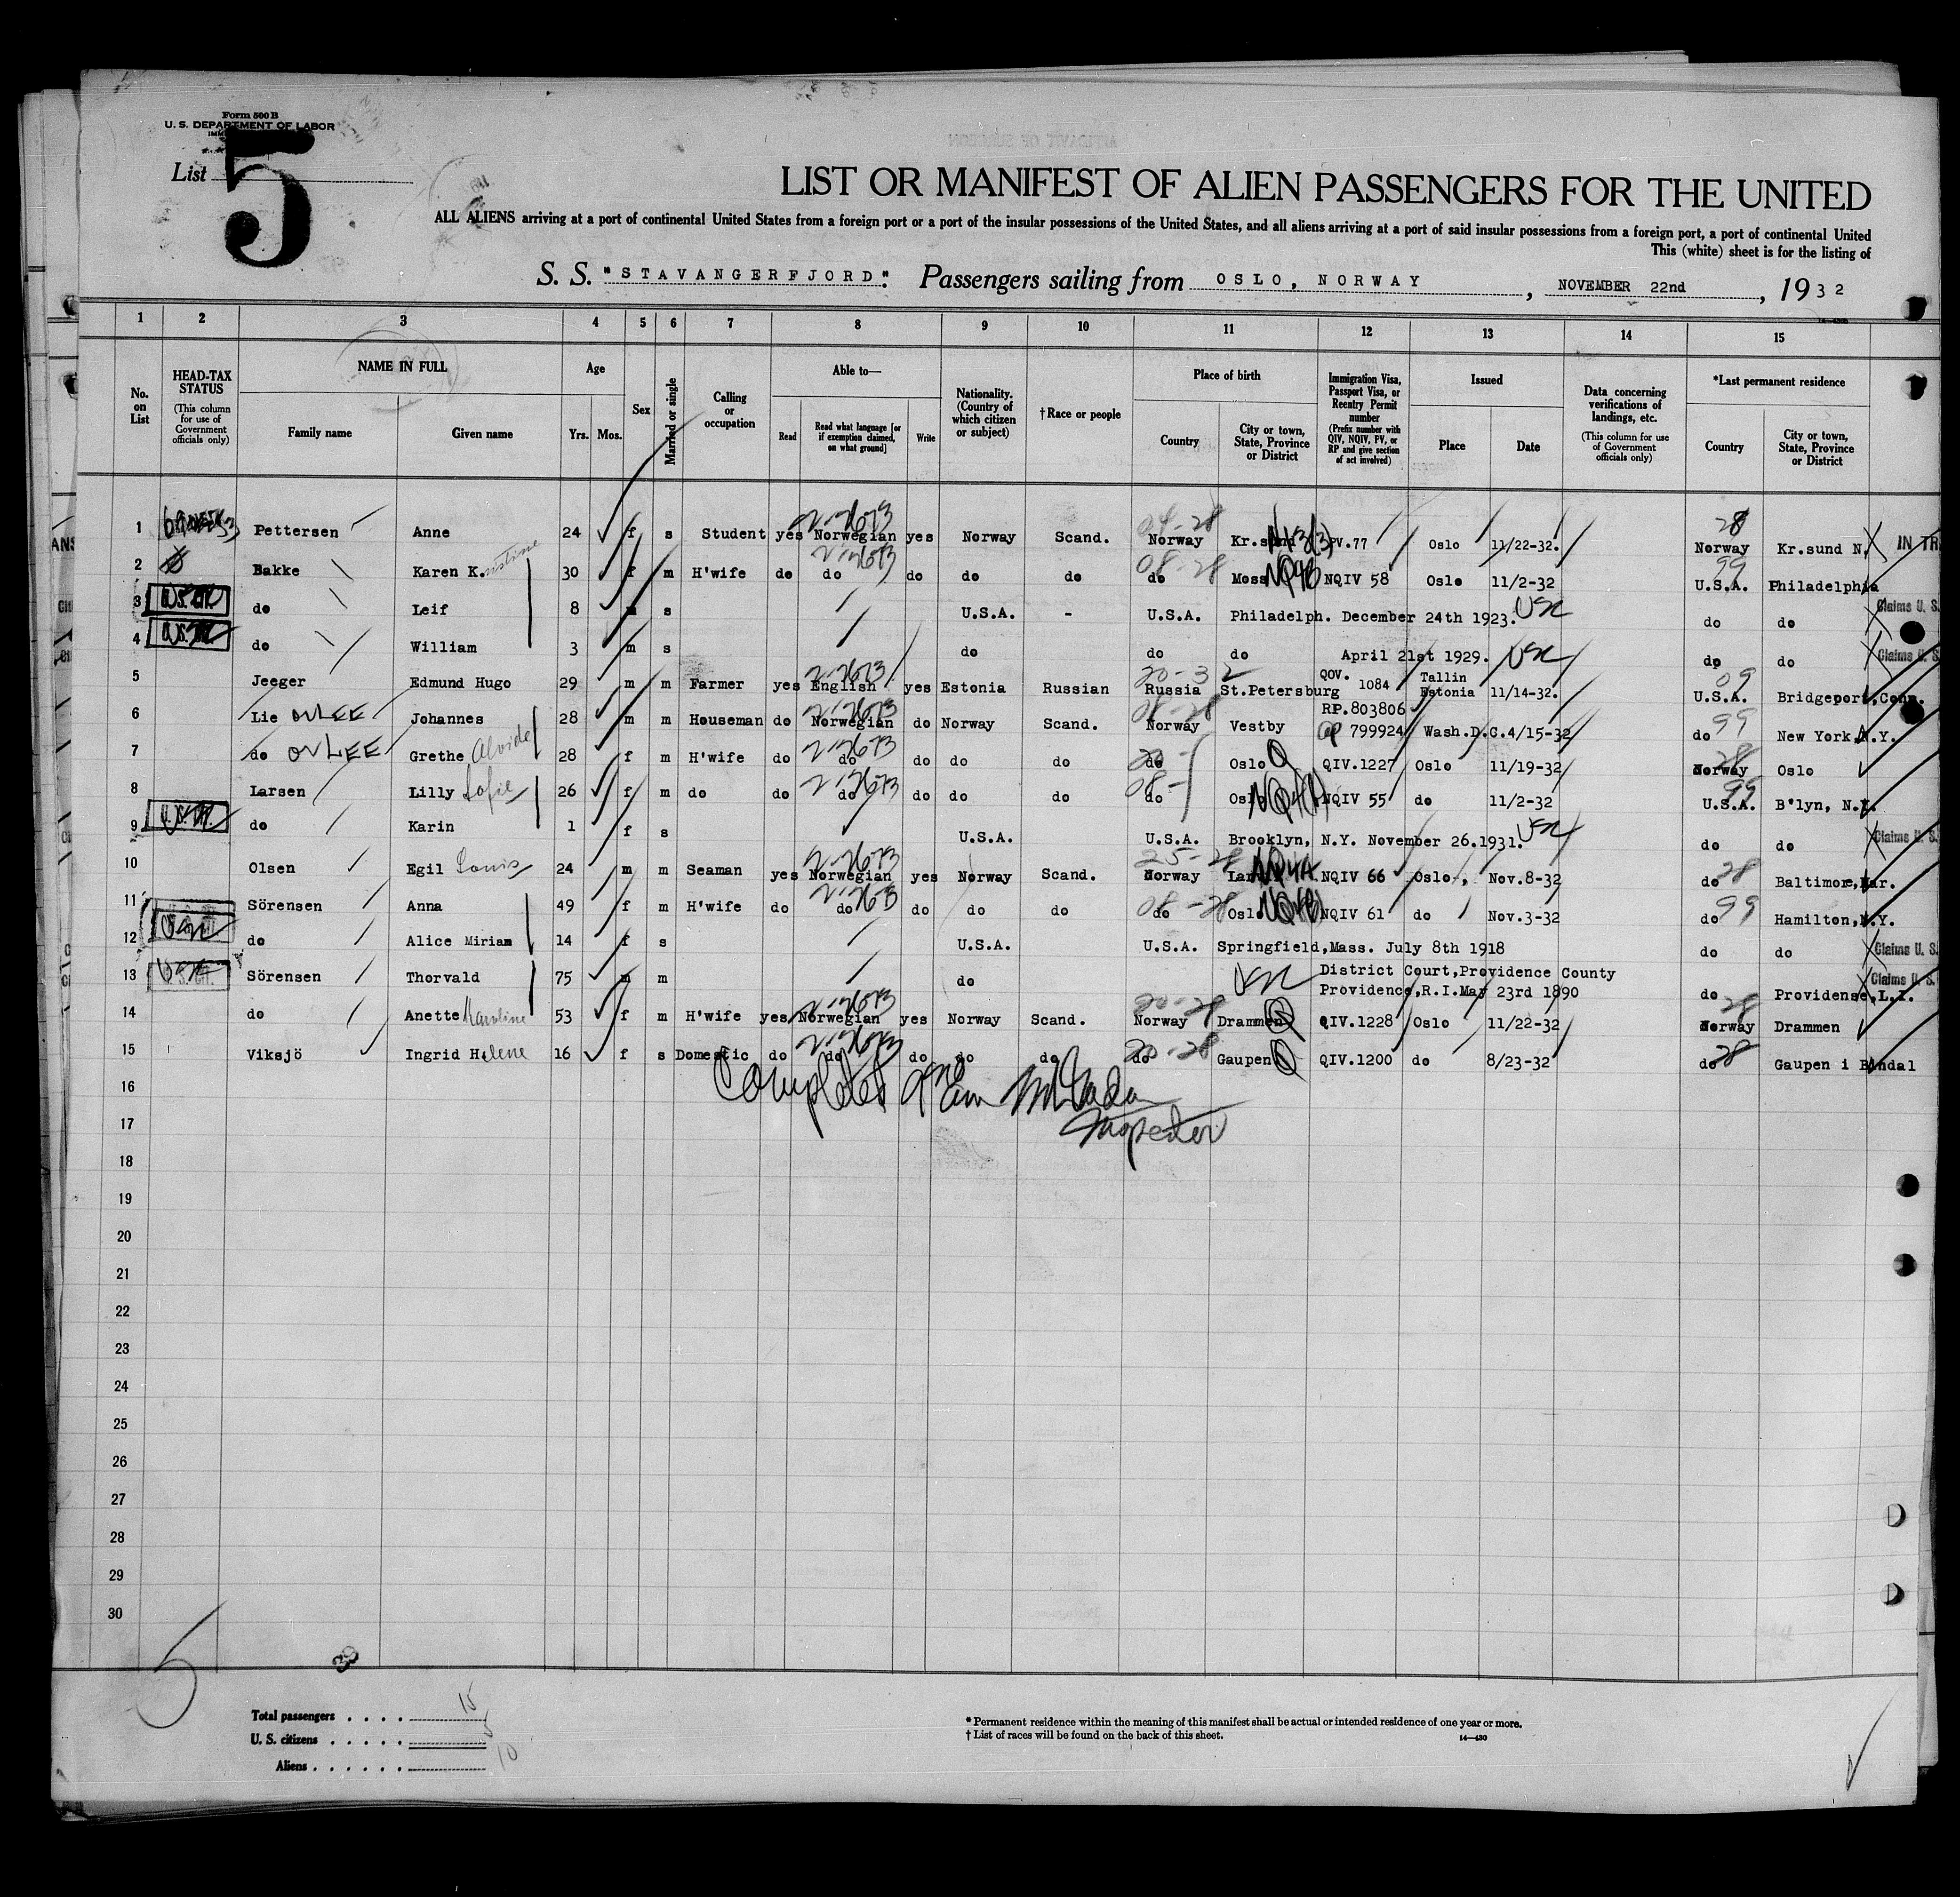 Form 500 B
U. S. DEPARTMENT OF LABOR
List 5
LIST OR MANIFEST OF ALIEN PASSENGERS FOR THE UNITED
ALL ALIENS arriving at a port of continental United States from a foreign port or a port of the insular possessions of the United States, and all aliens arriving at a port of said insular possessions from a foreign port, a port of continental United
This (white) sheet is for the listing of
S. S. "STAVANGERFJORD". Passengers sailing from OSLO, NORWAY, NOVEMBER 22nd, 1932
1 2 3 4 5 6 7 8 9 10 11 12 13 14 15
No. on List
HEAD-TAX STATUS (This column for use of Government officials only)
NAME IN FULL
Family name Given name
Age
Yrs. Mos.
Sex
Married or single
Calling or occupation
Able to—
Read Read what language [or if exemption claimed, on what ground] Write
Nationality. (Country of which citizen or subject)
†Race or people
Place of birth
Country City or town, State, Province or District
Immigration Visa, Passport Visa, or Reentry Permit number (Prefix number with QIV, NQIV, PV, or RP and give section of act involved)
Issued
Place Date
Data concerning verifications of landings, etc. (This column for use of Government officials only)
*Last permanent residence
Country City or town, State, Province or District
1 Pettersen Anne 24 f s Student yes Norwegian yes Norway Scand. Norway Kr.sund PV.77 Oslo 11/22-32. Norway Kr.sund N. IN TR
2 Bakke Karen K. 30 f m H'wife do do do do do do Moss NQIV 58 Oslo 11/2-32 U.S.A. Philadelphia
3 do Leif 8 m s U.S.A. - U.S.A. Philadelph. December 24th 1923. USC do do Claims U. S.
4 do William 3 m s do do do April 21st 1929. USC do do Claims U. S.
5 Jeeger Edmund Hugo 29 m m Farmer yes English yes Estonia Russian Russia St.Petersburg QOV. 1084 Tallin Estonia 11/14-32. U.S.A. Bridgeport,Conn.
6 Lie OVLEE Johannes 28 m m Houseman do Norwegian do Norway Scand. Norway Vestby RP.803806 799924 Wash.D.C.4/15-32 do New York,N.Y.
7 do OVLEE Grethe Alvide 28 f m H'wife do do do do do do Oslo Q QIV.1227 Oslo 11/19-32 Norway Oslo
8 Larsen Lilly Sofie 26 f m do do do do do do do Oslo NQIV 55 do 11/2-32 U.S.A. B'lyn, N.Y.
9 do Karin 1 f s U.S.A. U.S.A. Brooklyn, N.Y. November 26.1931. USC do do Claims U. S.
10 Olsen Egil Louis 24 m m Seaman yes Norwegian yes Norway Scand. Norway NQIV 66 Oslo, Nov.8-32 do Baltimore,Mar.
11 Sörensen Anna 49 f m H'wife do do do do do do Oslo NQIV 61 do Nov.3-32 do Hamilton,N.Y.
12 do Alice Miriam 14 f s U.S.A. U.S.A. Springfield,Mass. July 8th 1918 do do Claims U. S.
13 Sörensen Thorvald 75 m m do USC District Court,Providence County Providence,R.I.May 23rd 1890 do Providense,L.I. Claims U. S.
14 do Anette Karoline 53 f m H'wife yes Norwegian yes Norway Scand. Norway Drammen Q QIV.1228 Oslo 11/22-32 Norway Drammen
15 Viksjö Ingrid Helene 16 f s Domestic do do do do do do Gaupen Q QIV.1200 do 8/23-32 do Gaupen i Bindal
16
17
Inspector
18
19
20
21
22
23
24
25
26
27
28
29
30
5
Total passengers . . . . 15
U. S. citizens . . . . . 5
Aliens . . . . . . 10
* Permanent residence within the meaning of this manifest shall be actual or intended residence of one year or more.
† List of races will be found on the back of this sheet.
14—430